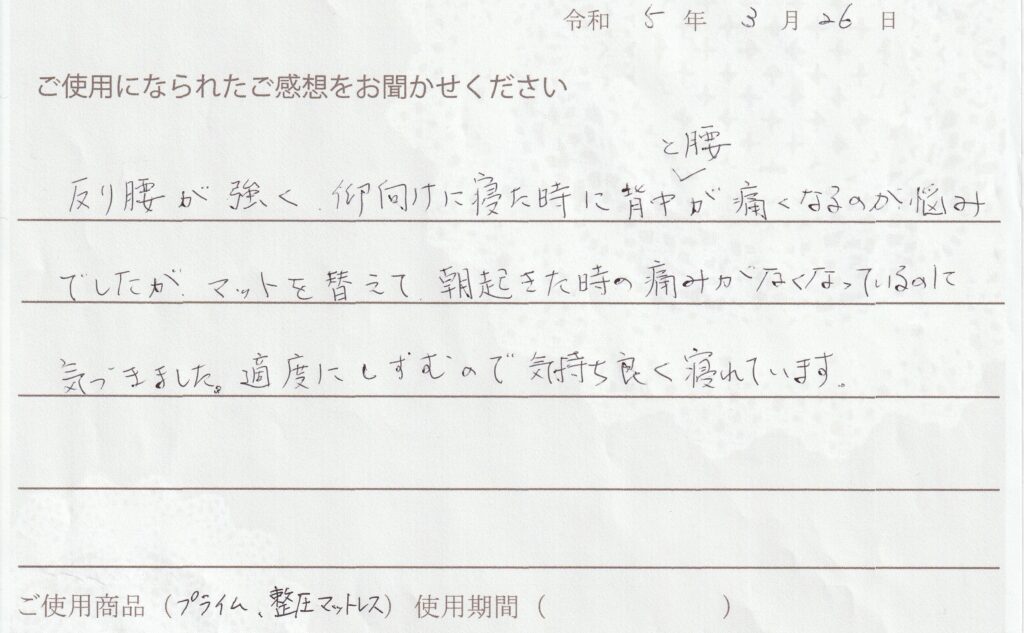 令和 5 年 3 月 26 日
ご使用になられたご感想をお聞かせください
と腰
反り腰が強く、仰向けに寝た時に背中が痛くなるのが悩み
でしたが、マットを替えて、朝起きた時の痛みがなくなっているのに
気づきました。適度にしずむので気持ち良く寝れています。
ご使用商品（プライム、整圧マットレス）使用期間（　　　　　　）